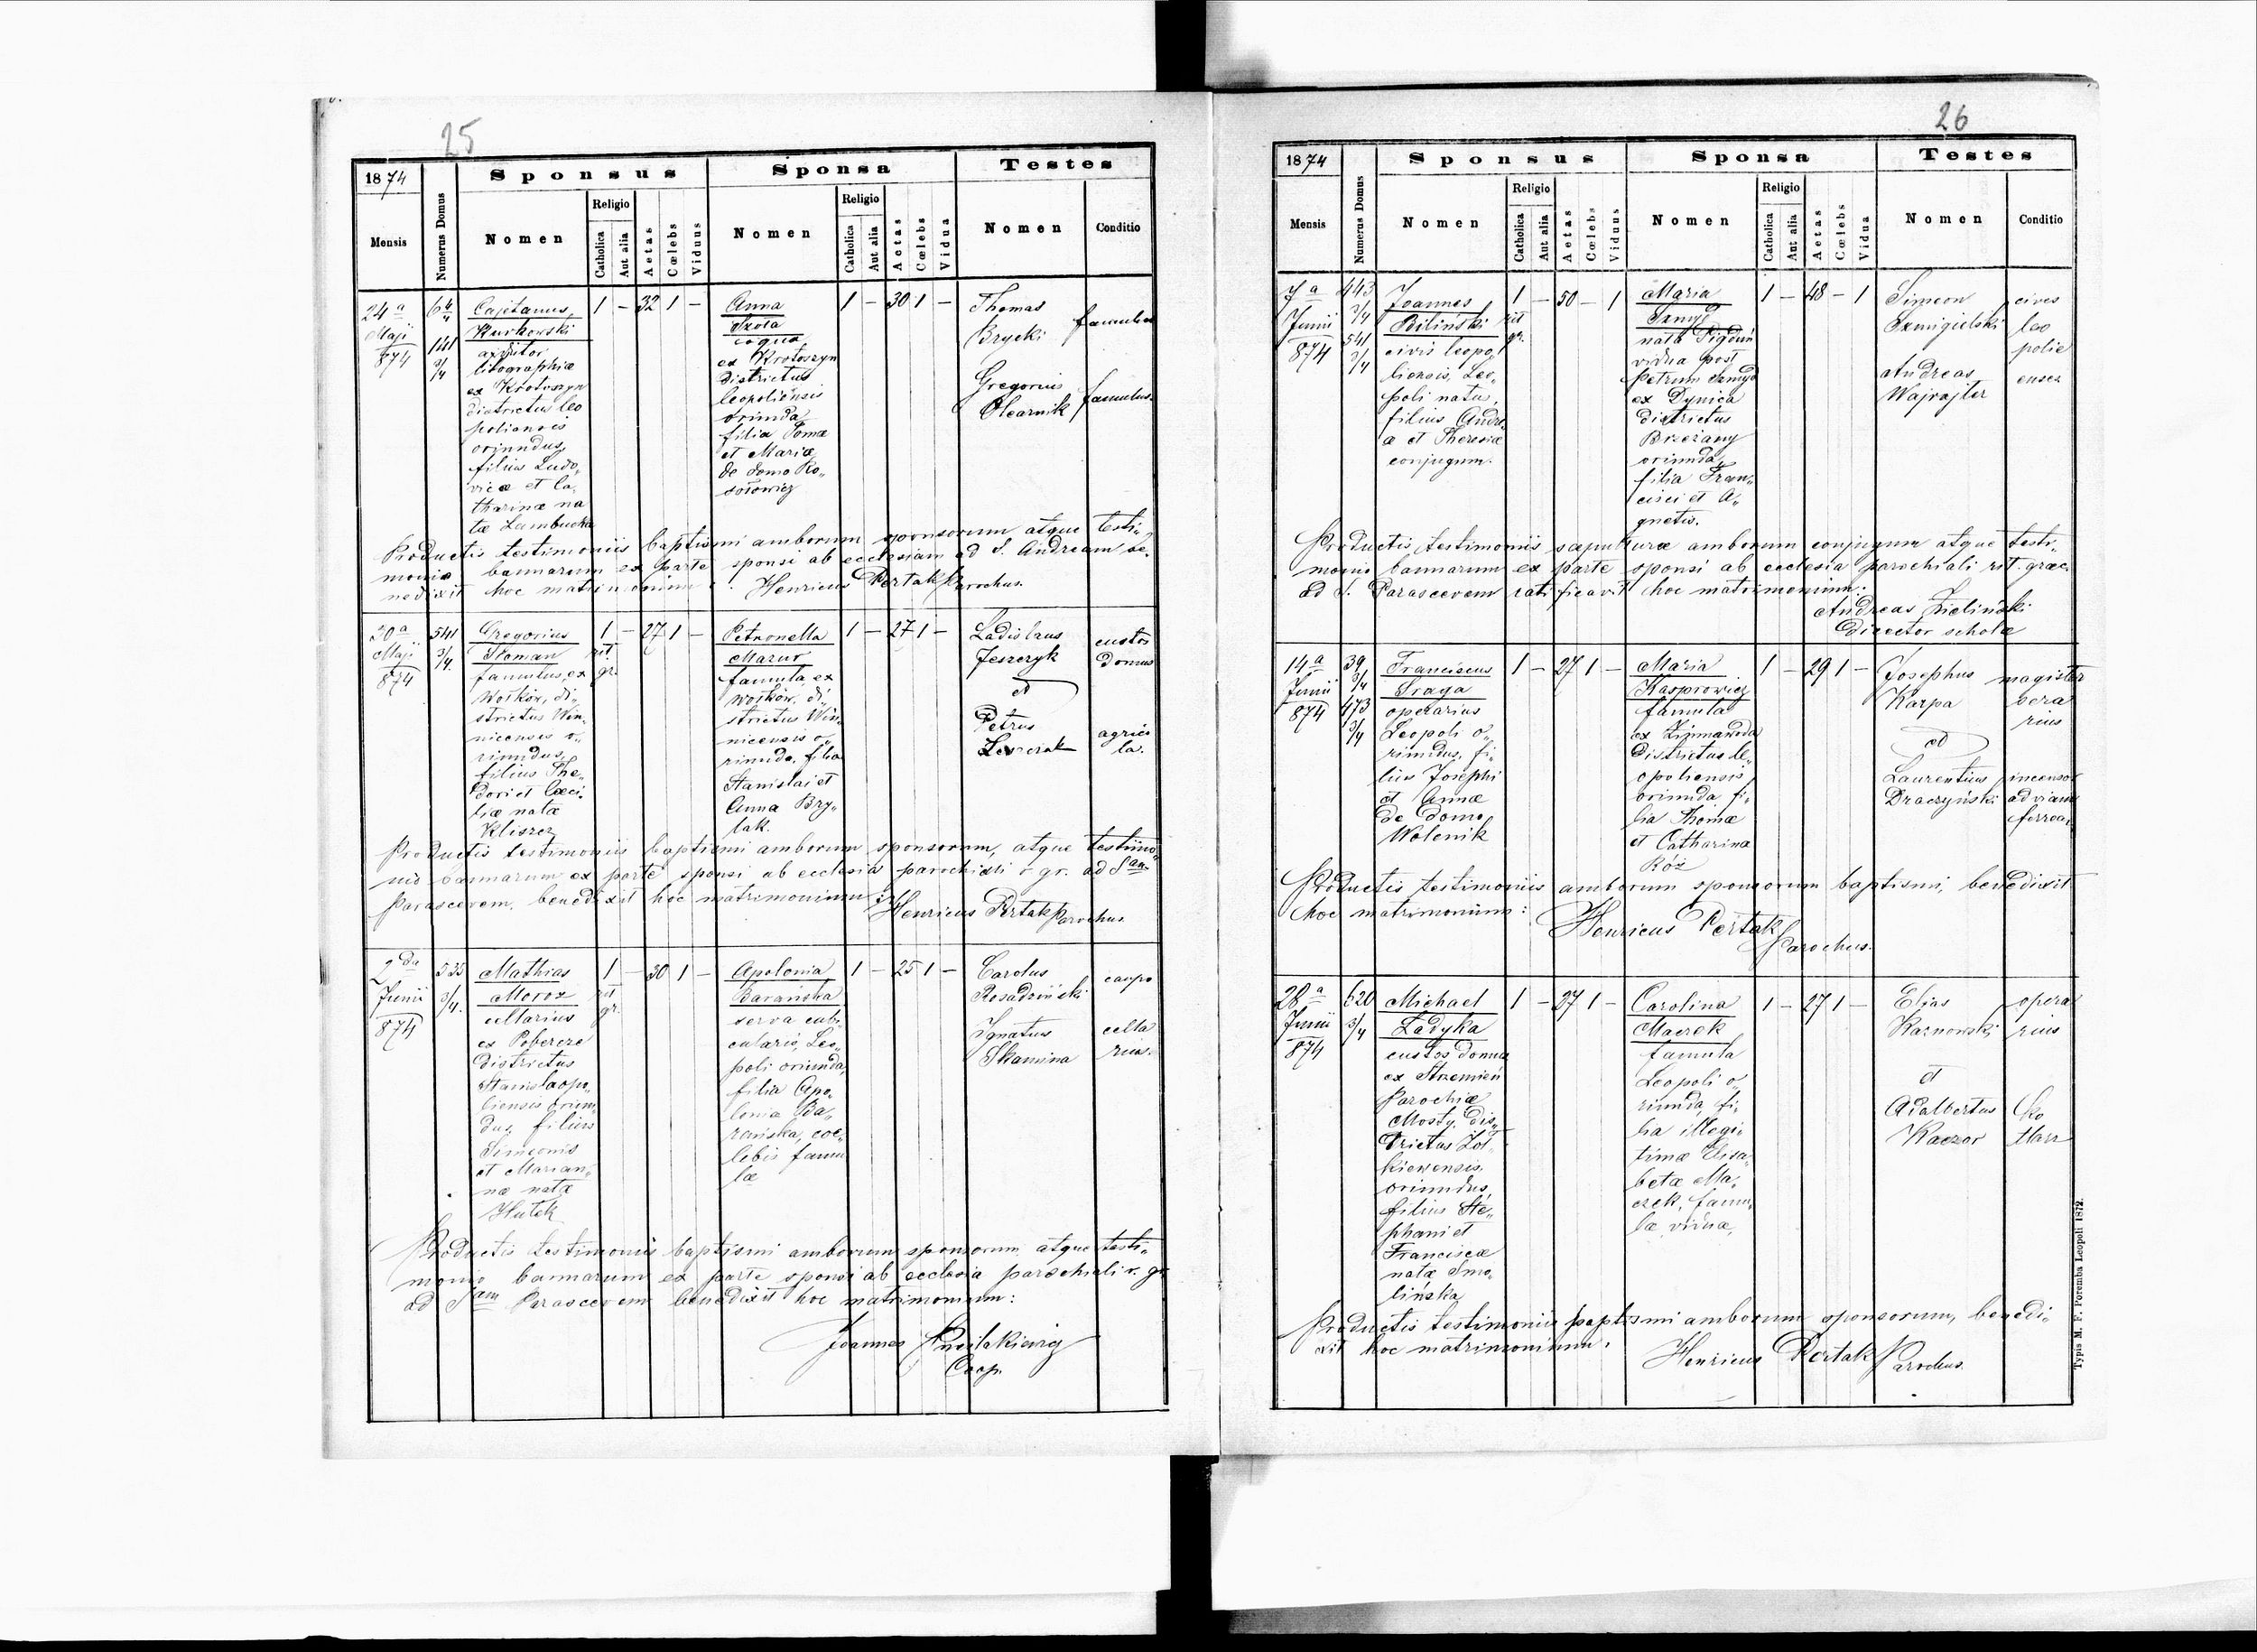 25
1874
Sponsus
Sponsa
Testes
Mensis
Numerus Domus
Nomen
Religio
Catholica
Aut alia
Aetas
Cœlebs
Viduus
Nomen
Religio
Catholica
Aut alia
Aetas
Cœlebs
Vidua
Nomen
Conditio
24a
Maji
874
6 4/4
141
3/4
Cajetanus
Kurkowski
litographiæ
ex Krotoszyn
districtus leo
poliensis
oriundus,
filius Ludo„
vicæ et Ca„
tharinæ na
tæ
1 – 32 1 –
Anna
Szota
coqua
ex Krotoszyn
districtus
leopoliensis
oriunda
filia Tomæ
et Mariæ
de domo Ko„
sołowicz
1 – 30 1 –
Thomas
Brycki
famulus
Gregorius
Olearnik
famulus.
Productis testimoniis baptismi amborum sponsorum atque testi„
monio bannorum ex parte sponsi ab ecclesiam ad S. Andream be„
nedixit hoc matrimonium: Henricus Pertak Parochus.
30a
Maji
874
541
3/4.
Gregorius
Floman
famulus, ex
Wołków, di„
strictus Win„
nicensis o„
riundus,
filius The„
dori et Cæci„
liæ natæ
Kliszcz
1 – 27 1 –
rit.
gr.
Petronella
Mazur
famula, ex
Wołków, di„
strictus Win„
nicensis o„
riunda, filia
Stanislai et
Anna Bry„
lak.
1 – 27 1 –
Ladislaus
Jeszczyk
custos
domus
et
Petrus
agrico
la.
Productis testimoniis baptismi amborum sponsorum, atque testimo„
nio bannarum ex parte sponsi ab ecclesia parochiali r. gr. ad San
Parascevem, benedixit hoc matrimonium:
Henricus Pertak Parochus.
2da
Junii
874
535
3/4.
Mathias
Moroz
ex Pobereze
districtus
Stanislaopo„
liensis oriun„
dus, filius
Simeonis
et Marian„
næ natæ
Hutek
1 – 30 1 –
rit
gr.
Apolonia
Barańska
serva cubi„
cularis, Leo„
poli oriunda,
filia Apo„
lonia Ba„
rańska, coe„
lebis famu
læ
1 – 25 1 –
Carolus
Rosadziński
caupo
Ignatus
Skamina
cella
rius.
Productis testimoniis baptismi amborum sponsorum atque testi„
monio bannarum ex parte sponsi ab ecclesia parochiali r. gr.
ad Sam Parascevem benedixit hoc matrimonium:
Joannes
Coop.
26
1874
Sponsus
Sponsa
Testes
Mensis
Numerus Domus
Nomen
Religio
Catholica
Aut alia
Aetas
Cœlebs
Vidus
Nomen
Religio
Catholica
Aut alia
Aetas
Cœlebs
Vidua
Nomen
Conditio
7a
Junii
874
443
3/4
541
3/4
Joannes
Biliński
civis leopo„
liensis, Leo„
poli natu,
filius Andre„
æ et Theresiæ
conjugum.
1 – 50 – 1
rit
gr.
Maria
Szmyd
nata
vidua post
Petrum Szmyd
ex Dynica
districtus
Brzeżany
oriunda,
filia Fran„
cisci et A„
gnetis.
1 – 48 – 1
Simeon
Szmigielski
Andreas
Wajrajter
cives
leo
polie
enses
Productis testimoniis sæpulturæ amborum conjugum atque testi„
monio bannarum ex parte sponsi ab ecclesia parochiali rit. græc.
ad S. Parascevem ratificavit hoc matrimonium:
Andreas Zieliński
Director scholæ
14a
Junii
874
39
3/4
473
3/4
Franciscus
Praga
operarius
Leopoli o„
riundus, fi„
lius Josephi
et Annæ
de domo
Wolenik
1 – 27 1 –
Maria
Kasprowicz
famula
ex Zimnawoda
districtus le„
opoliensis
oriunda, fi„
lia Thomæ
et Catharina
Róż
1 – 29 1 –
Josephus
Karpa
magister
sera
rius
et
Laurentius
Draczyński
incensor
ad viam
ferrea,
Productis testimoniis amborum sponsorum baptismi, benedixit
hoc matrimonium:
Henricus Pertak
Parochus.
28a
Junii
874
620
3/4
Michael
Ładyka
custos domus
ex Strzemień
Parochiæ
Mosty, dis„
trictus Żoł„
kiewensis,
oriundus,
filius Ste„
phani et
Franciscæ
natæ Smo„
lińska
1 – 27 1 –
Carolina
Maczek
famula
Leopoli o„
riunda, fi„
lia illegi„
timæ Elisa„
betæ Ma„
czek, famu„
læ viduæ,
1 – 27 1 –
Elias
Kaznowski
opera
rius
et
Adalbertus
Kaczor
Productis testimoniis baptismi amborum sponsorum, benedi„
xit hoc matrimonium.
Henricus Pertak Parochus.
Typis M. F. Poremba Leopoli 1872.